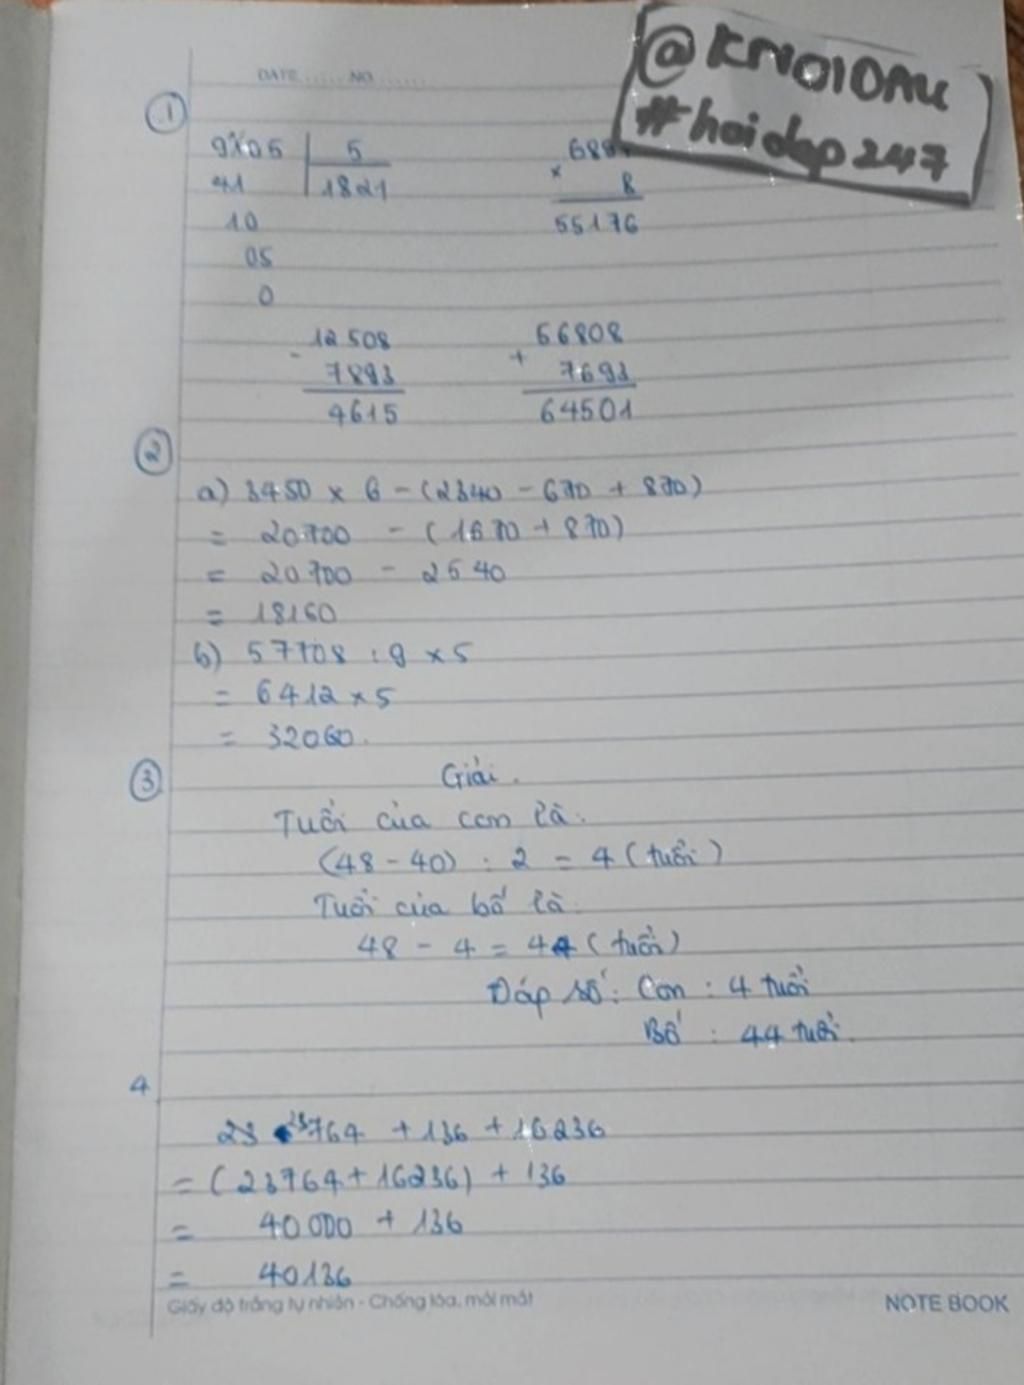 @KNOIDAU
#hoidap247
DATE ...... NO .......
1
9105 5
41 1821
10
05
0
× 8
55176
12508
-
7893
4615
56808
+
7693
64501
2
a) 3450 × 6 - (2340 - 670 + 870)
= 20700 - (1670 + 870)
= 20700 - 2540
= 18160
b) 57708 : 9 × 5
= 6412 × 5
= 32060.
3
Giải.
Tuổi của con là:
(48 - 40) : 2 = 4 (tuổi)
Tuổi của bố là:
48 - 4 = 44 (tuổi)
Đáp số: Con : 4 tuổi
Bố : 44 tuổi.
4
23764 + 136 + 16236
= (23764 + 16236) + 136
= 40000 + 136
= 40136
Giấy độ trắng tự nhiên - Chống lóa, mỏi mắt
NOTE BOOK